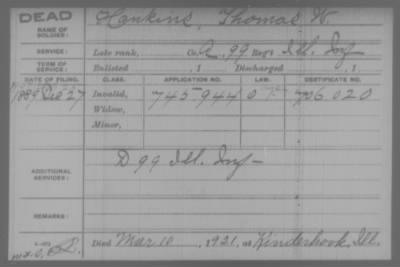 DEAD
NAME OF SOLDIER: Hankins, Thomas W.
SERVICE: Late rank, Co. A, 99 Reg't Ill. Inf
TERM OF SERVICE: Enlisted , 1 Discharged , 1
DATE OF FILING. CLASS. APPLICATION NO. LAW. CERTIFICATE NO.
1889 Dec 27 Invalid, 745.944 706.020
Widow,
Minor,
D 99 Ill. Inf
ADDITIONAL SERVICES:
REMARKS:
Died Mar 10, 1921, at Kinderhook, Ill.